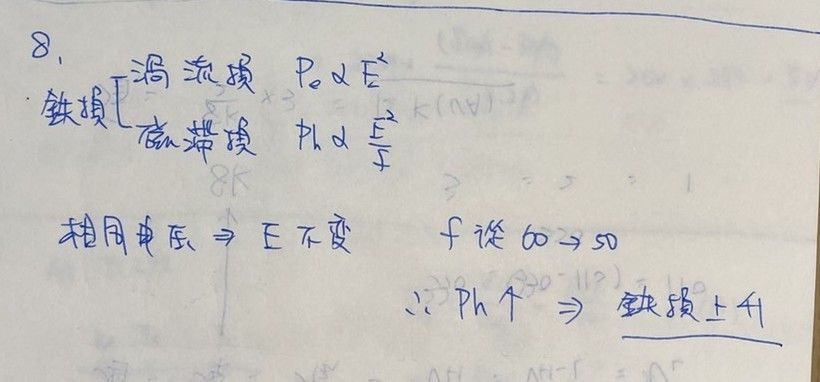 8.
鉄損 [ 渦流損 Pe ∝ E²
磁滯損 Ph ∝ E²/f
相同电压 ⇒ E 不变 f 從 60 → 50
∴ Ph ↑ ⇒ 鉄損上升